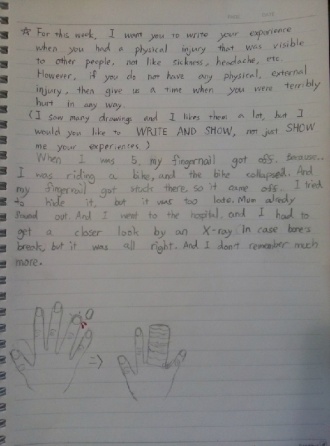 ☆ For this week, I want you to write your experience
when you had a physical injury that was visible
to other people, not like sickness, headache, etc.
However, if you do not have any physical, external
injury, then give us a time when you were terribly
hurt in any way.
(I saw many drawings and I likes them a lot, but I
would you like to WRITE AND SHOW, not just SHOW
me your experiences.)
When I was 5, my fingernail got off. Because..
I was riding a bike, and the bike collapsed. And
my fingernail got stuck there, so it came off. I tried
to hide it, but it was too late. Mom alredy
found out. And I went to the hospital, and I had to
get a closer look by an X-ray. In case bone's
break, but it was all right. And I don't remember much
more.
=>